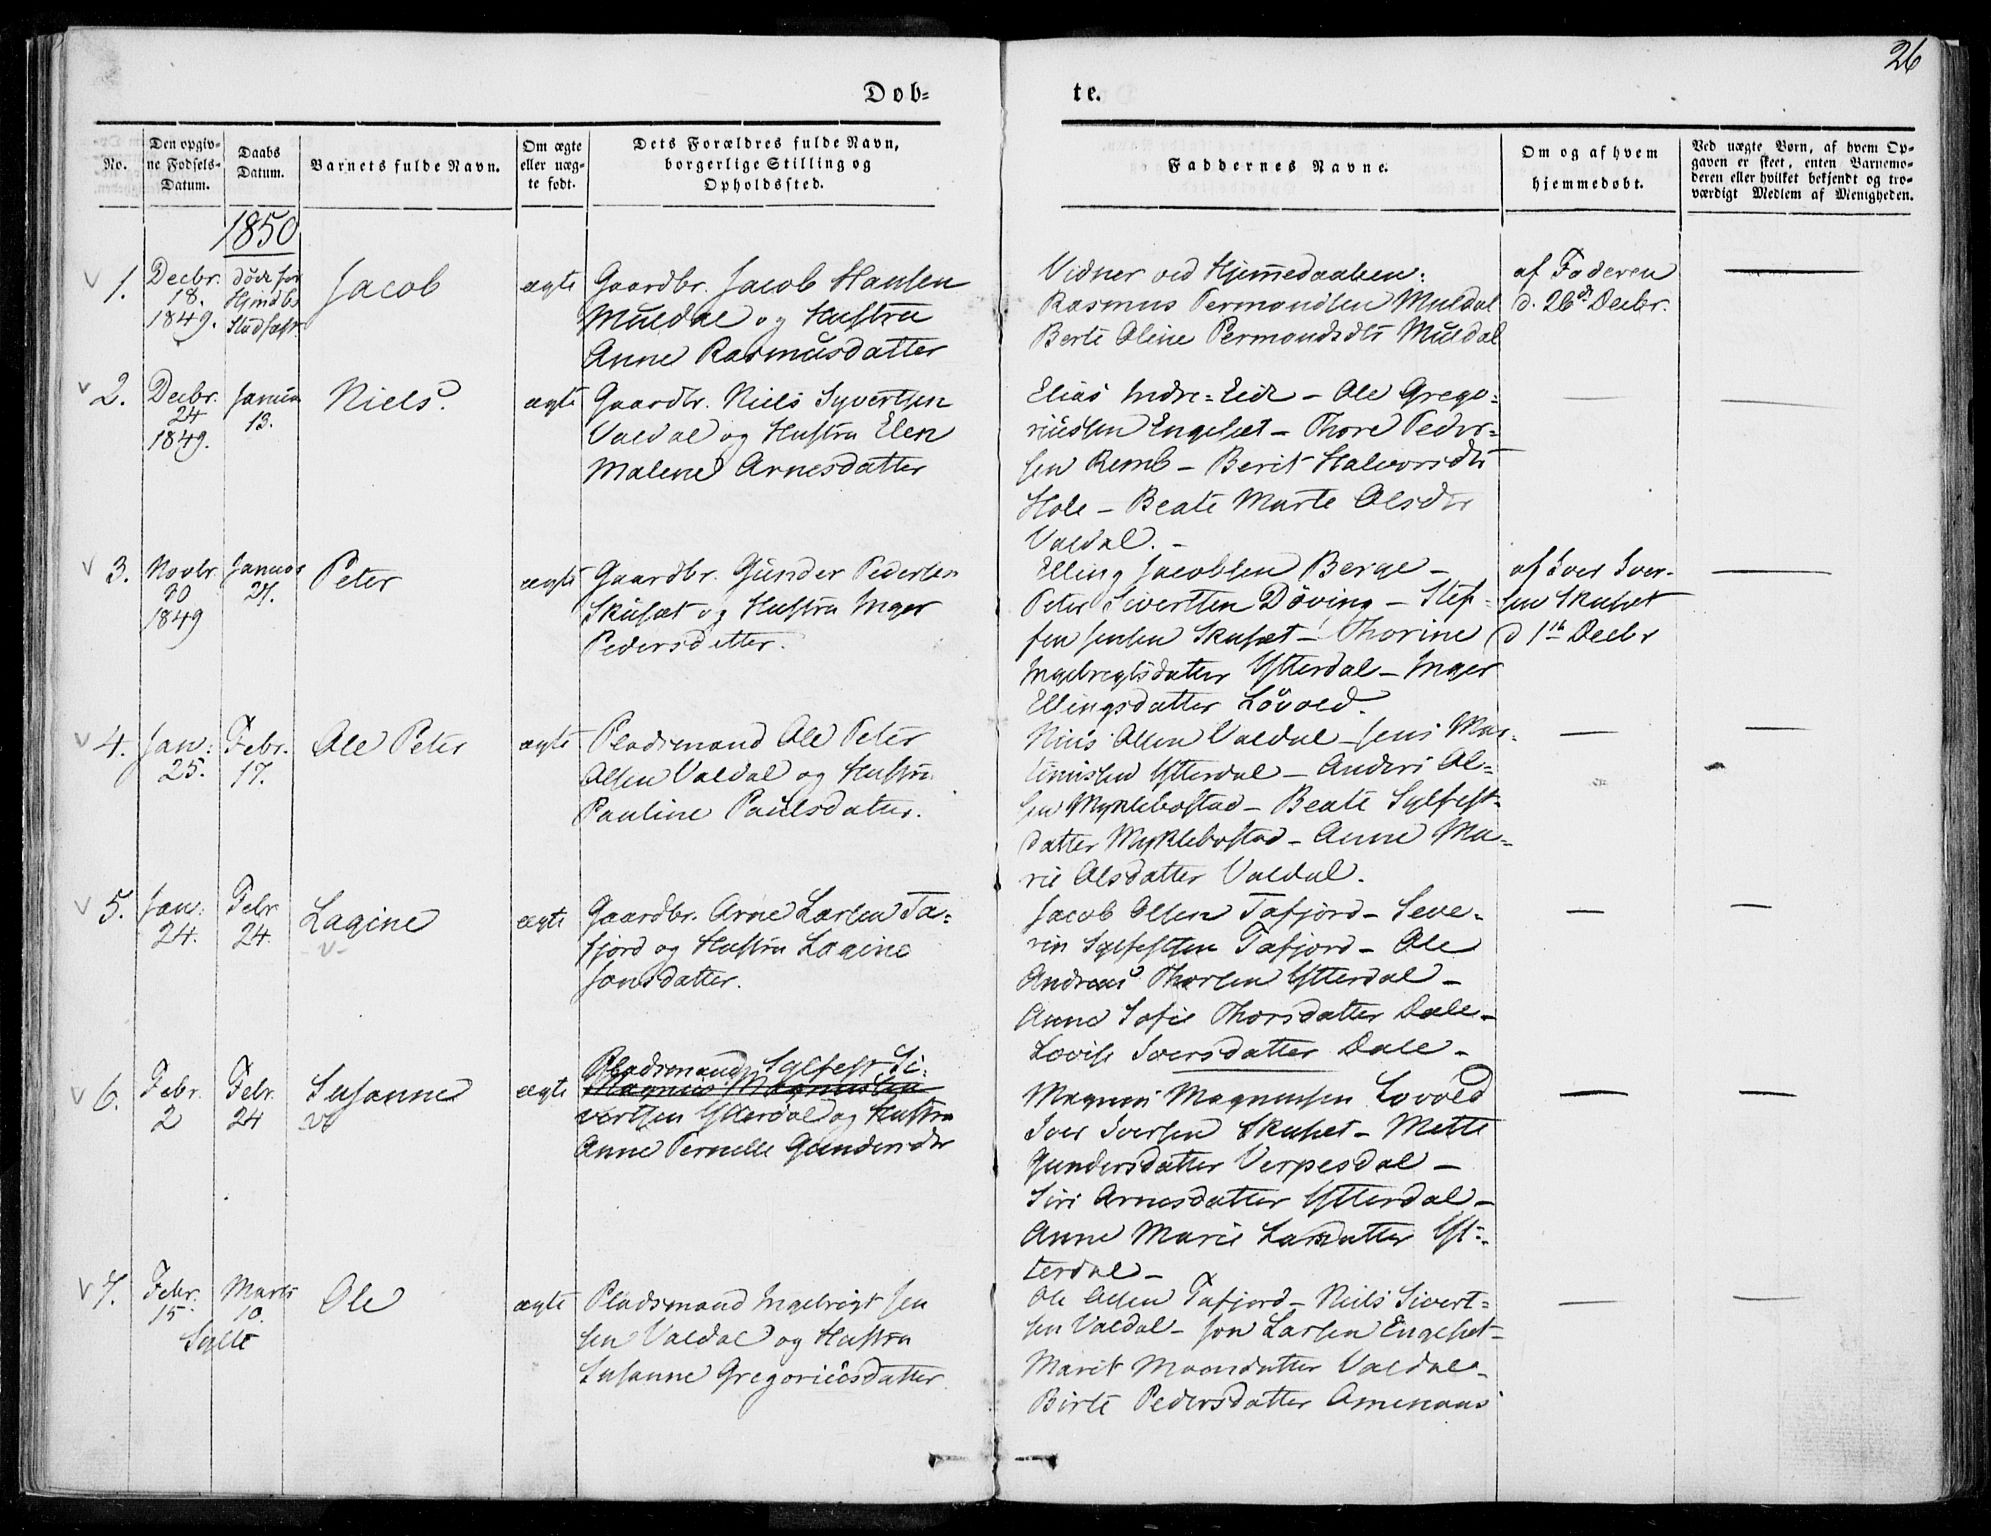 26
Døb-
te.
No.
Den opgiv-
ne Fødsels-
Datum.
Daabs
Datum.
Barnets fulde Navn.
Om ægte
eller uæg-
te født.
Dets Forældres fulde Navn,
borgerlige Stilling og
Opholdssted.
Faddernes Navne.
Om og af hvem
hjemmedøbt.
Ved uægte Børn, af hvem Op-
gaven er skeet, enten Barnemo-
deren eller hvilket bekjendt og tro-
værdigt Medlem af Menigheden.
1850
1.
Decbr.
18.
1849.
død før
Stadfæst.
Jacob
ægte
Gaardbr. Jacob Hansen
Muldal og Hustru
Anne Rasmusdatter
Vidner ved Hjemmedaaben:
Rasmus Permondsen Muldal
Berte Oline Permondsdtr Muldal
af Faderen
d. 26de Decbr.
2.
Decbr.
24
1849.
Januar
13.
Niels.
ægte
Gaardbr. Niels Syvertsen
Valdal og Hustru Elen
Malene Arnesdatter
Elias Indre-Eide - Ole Grego-
riussen Engeset - Thore Peder-
sen Remb - Berit Halvorsdtr
Hole - Beate Marte Olsdtr
Valdal. -
3.
Novbr.
30
1849
Januar
27.
Peter
ægte
Gaardbr. Gunder Pedersen
Skuset og Hustru Inger
Pedersdatter.
Elling Jacobsen Berge -
Peter Sivertsen Döving - Stef-
fen Jensen Skuset - Thorine
Ingebregtsdatter Ytterdal - Inger
Ellingsdatter Lövold.
af Iver Iver-
sen Skuset
d 1ste Decbr
4.
Jan:
25.
Febr.
17.
Ole Peter
ægte
Pladsmand Ole Peter
Olsen Valdal og Hustru
Pauline Paulsdatter.
Niels Olsen Valdal - Jens Mar-
tinussen Ytterdal - Anders Ol-
sen Myklebostad - Beate Sylfest-
datter Myklebostad - Anne Ma-
rie Olsdatter Valdal.
5.
Jan:
24.
Febr
24.
Lagine
ægte
Gaardbr. Arne Larsen Ta-
fjord og Hustru Lagine
Jonsdatter.
Jacob Olsen Tafjord - Seve-
rin Sylfestsen Tafjord - Ole
Andreas Thorsen Ytterdal -
Anne Sofie Thorsdatter Dale -
Lovise Iversdatter Dale -
6.
Febr.
2
Febr.
24
Susanne
ægte
Pladsmand Sylfest Si-
Magnus Magnussen
vertsen Ytterdal og Hustru
Anne Pernelle Gundersdtr
Magnus Magnussen Lovold
Iver Iversen Skuset - Mette
Gundersdatter Verpesdal -
Siri Arnesdatter Ytterdal -
Anne Marie Larsdatter Yt-
terdal -
7.
Febr.
15
Marts
10.
Sylte
Ole
ægte
Pladsmand Ingebrigt Jen
sen Valdal og Hustru
Susanne Gregoriusdatter.
Ole Olsen Tafjord - Niels Sivert-
sen Valdal - Jon Larsen Engeset -
Marit Monsdatter Valdal -
Birte Pedersdatter Omenaas